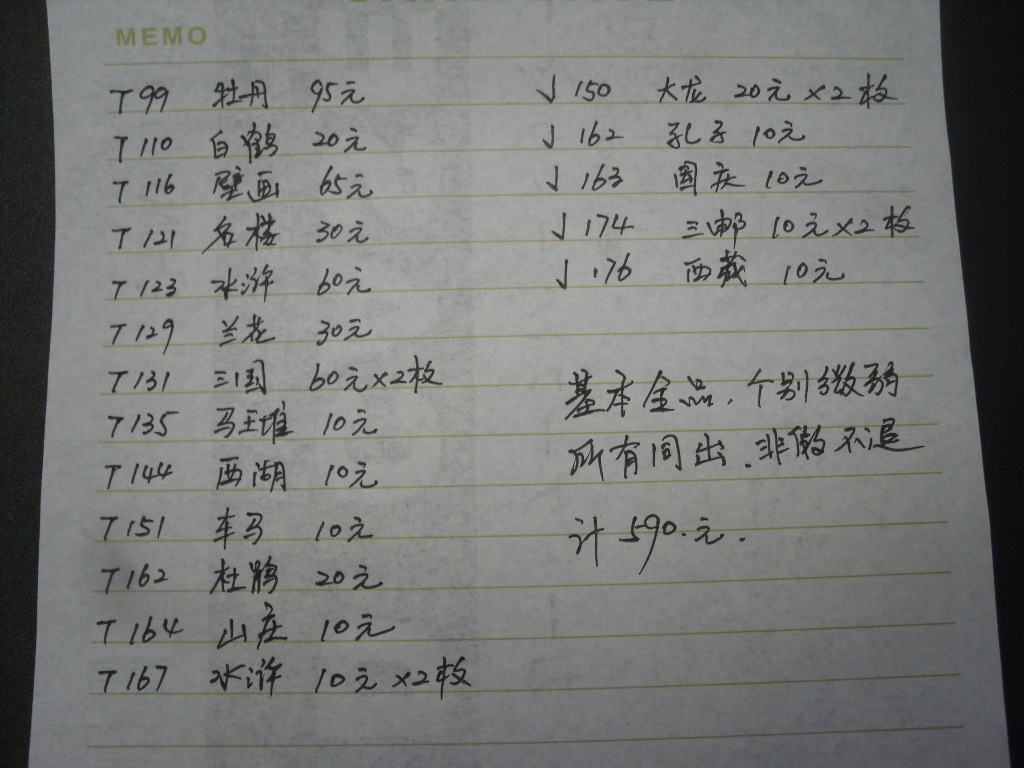 MEMO
T99 牡丹 95元
T110 白鹤 20元
T116 壁画 65元
T121 名楼 30元
T123 水浒 60元
T129 兰花 30元
T131 三国 60元×2枚
T135 马王堆 10元
T144 西湖 10元
T151 车马 10元
T162 杜鹃 20元
T164 山庄 10元
T167 水浒 10元×2枚
J150 大龙 20元×2枚
J162 孔子 10元
J163 国庆 10元
J174 三邮 10元×2枚
J176 西藏 10元
基本全品,个别微弱
所有同出.非假不退
计590.元.